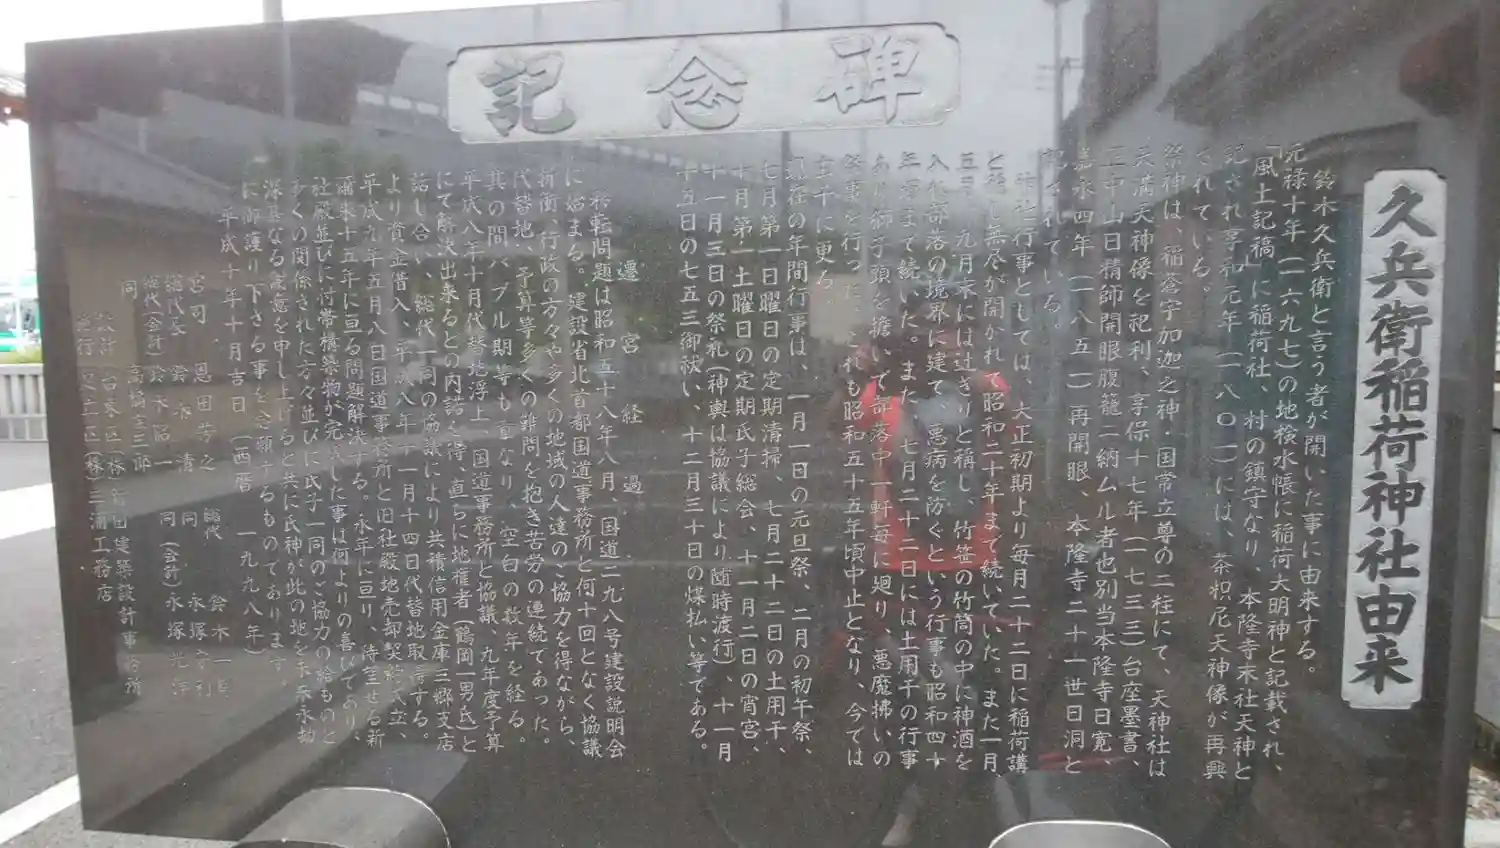 記念碑
久兵衛稲荷神社由来
鈴木久兵衛と言う者が開いた事に由来する。
元禄十年（一六九七）の地検水帳に稲荷大明神と記載され、
「風土記稿」に稲荷社、村の鎮守なり、本隆寺末社天神と
記され享和元年（一八〇一）には、荼枳尼天神像が再興
されている。
祭神は、稲倉宇加迦之神、国常立尊の二柱にて、天神社は
天満天神像を祀利、享保十七年（一七三三）台座墨書、
正中山日精師開眼腹籠二納ムル者也別当本隆寺日寛、
嘉永四年（一八五一）再開眼、本隆寺二十一世日洞と
記されている。
神社行事としては、大正初期より毎月二十二日に稲荷講
と称し無尽が開かれて昭和二十年まで続いていた。また一月、
五月、九月末には辻ぎりと称し、竹笹の竹筒の中に神酒を
入れ部落の境界に建て、悪病を防ぐという行事も昭和四十
年頃まで続いた。また、七月二十二日には土用干の行事
あり獅子頭を擔いで部落中一軒毎に廻り、悪魔拂いの
祭事を行った。これも昭和五十五年頃中止となり、今では
土干に更る。
現在の年間行事は、一月一日の元旦祭、二月の初午祭、
七月第一日曜日の定期清掃、七月二十二日の土用干、
十月第一土曜日の定期氏子総会、十一月二日の宵宮、
十一月三日の祭礼（神輿は協議により随時渡行）、十一月
十五日の七五三御祓い、十二月三十日の煤払い等である。
遷宮経過
移転問題は昭和五十八年八月、国道二九八号建設説明会
に始まる。建設省北首都国道事務所と何十回となく協議
折衝、行政の方々や多くの地域の人達のご協力を得ながら、
代替地、予算等多くの難問を抱き苦労の連続であった。
其の間バブル期等も重なり、空白の数年を経る。
平成八年十月代替地浮上、国道事務所と協議、九年度予算
にて解決出来るとの内諾を得、直ちに地権者（鶴岡一男氏）と
話し合い、総代一同の協議により共積信用金庫三郷支店
より資金借入、平成八年十一月十四日代替地取得する。
平成九年五月八日国道事務所と旧社殿地売却契約成立、
爾来十五年に亘る問題解決する。永年に亘り、待望せる新
社殿並びに付帯構築物が完成した事は何よりの喜びであり、
多くの関係された方々並びに氏子一同のご協力の賜ものと
深甚なる謝意を申し上げると共に氏神が此の地を末来永劫
に御護り下さる事を念願するものであります。
平成十年十月吉日（西暦 一九九八年）
宮司 恩田芳之
総代長 鈴木清
総代（会計）鈴木昭一
同 高橋金三郎
総代 鈴木一
同 永塚守利
同（会計）永塚光
設計 建築設計事務所
施行 （株）三浦工務店